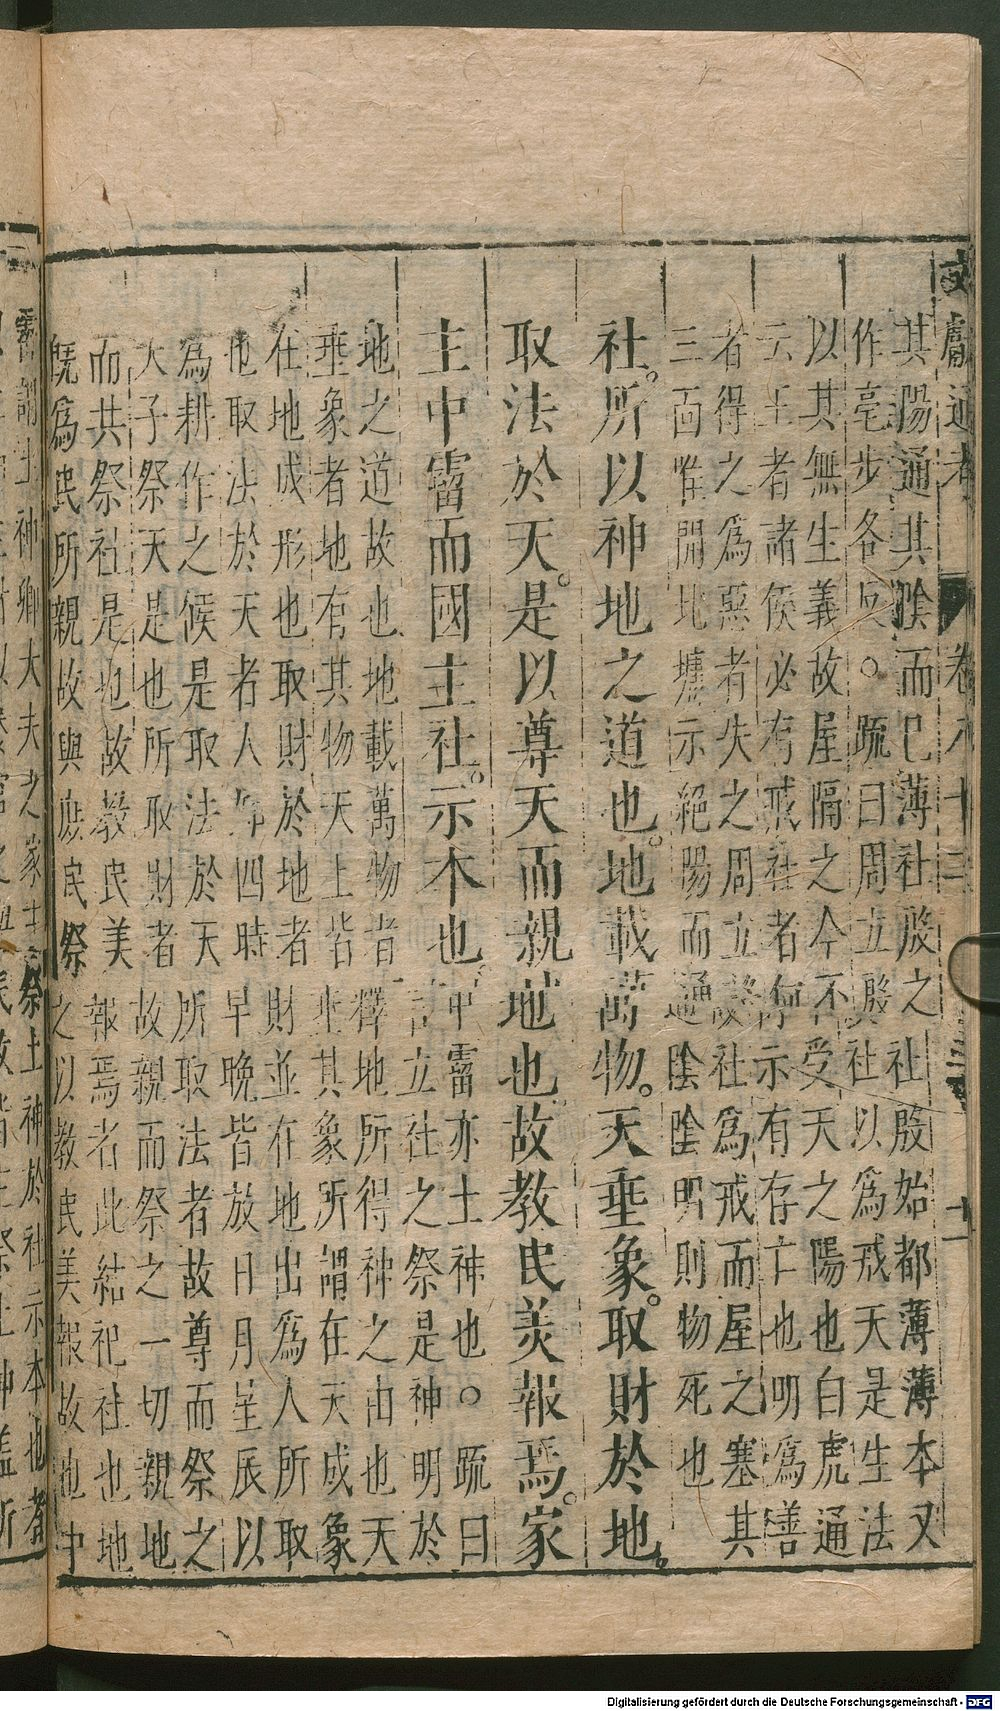 文獻通考 卷八十三 十一
其陽通其陰而已薄社殷之社殷始都薄薄本又
作亳步各反。疏曰周立殷社以爲戒天是生法
以其無生義故屋隔之令不受天之陽也白虎通
云王者諸侯必有戒社者何示有存亡也明爲善
者得之爲惡者失之周立殷社爲戒而屋之塞其
三面唯開北墉示絕陽而通陰陰明則物死也
社。所以神地之道也。地載萬物。天垂象。取財於地。
取法於天。是以尊天而親地也故教民美報焉。家
主中霤而國主社。示本也
中霤亦土神也。疏曰
言立社之祭是神明於
地之道故也地載萬物者釋地所得神之由也天
垂象者地有其物天上皆垂其象所謂在天成象
在地成形也取財於地者財並在地出爲人所取
也取法於天者人知四時早晚皆放日月星辰以
為耕作之候是取法於天所取法者故尊而祭之
天子祭天是也所取財者故親而祭之一切親地
而共祭社是也故教民美報焉者此結祀社也地
旣爲民所親故與庶民祭之以教民美報故也中
霤謂土神卿大夫之家主祭土神於社示本也者
Digitalisierung gefördert durch die Deutsche Forschungsgemeinschaft - DFG